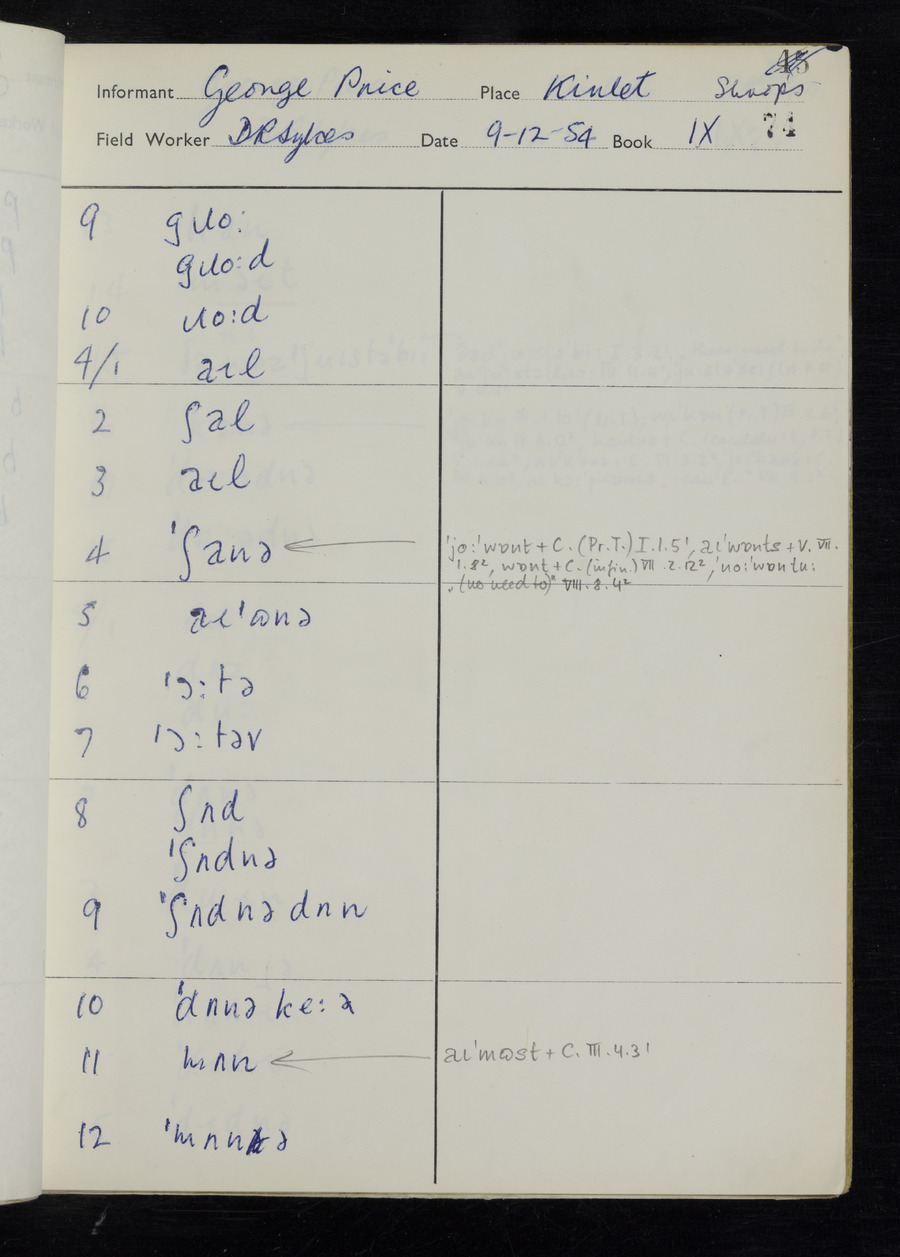 45
Informant George Price Place Kinlet Shrops
Field Worker D R Sykes Date 9-12-54 Book IX 74
9 gɹɔ:
gɹɔ:d
10 ɹɔ:d
4/1 aɪl
2 ʃal
3 aɪl
4 'ʃanə 'jo:'wɒnt + C. (Pr.T.) I.1.5', aɪ'wɒnts + V. VII.
1.8², wɒnt + C. (infin.) VII.2.12², 'no:'wɒn tu:
(no need to)* VIII.8.4²
5 aɪ'ɒnə
6 'ɔ:tə
7 'ɔ:təv
8 ʃʌd
'ʃʌdnə
9 'ʃʌdnə dʌn
10 'dʌnə ke:ə
11 mʌn aɪ'mɒst + C. III.4.3'
12 'mʌnə